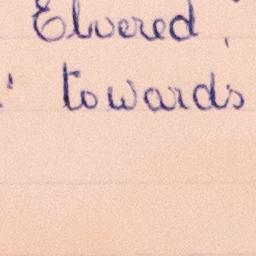 Elvered,
towards